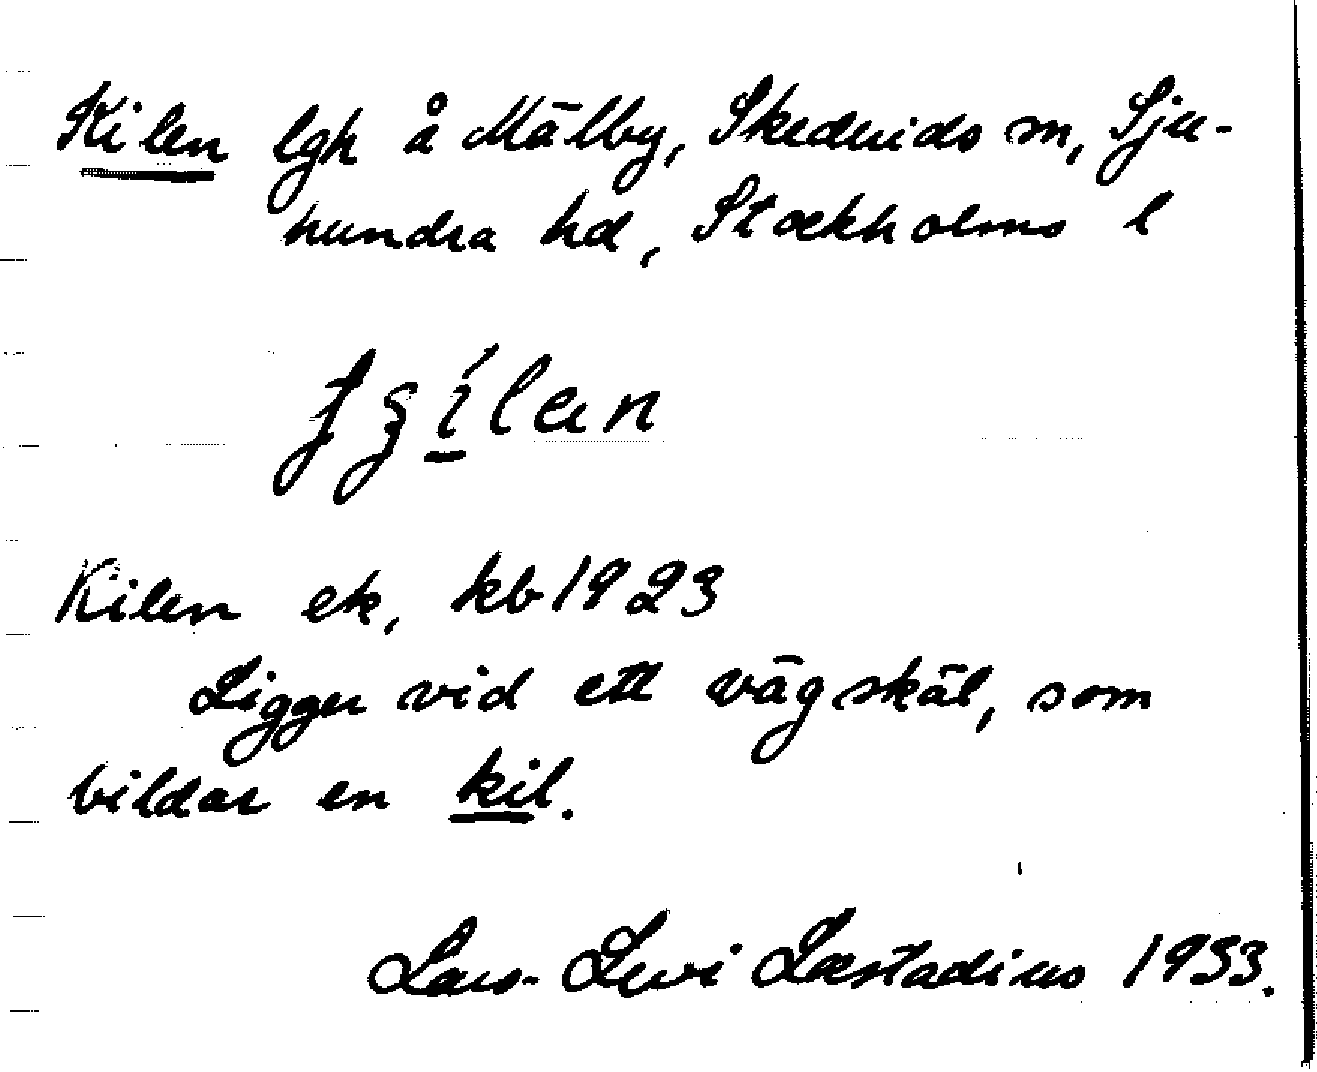 Kilen lgh å Mälby, Skeduids sn, Sju-
hundra hd, Stockholms l
Kilen ek, kb 1923
Ligger vid ett vägskäl, som
bildar en kil.
Lars-Levi Læstadius 1953.